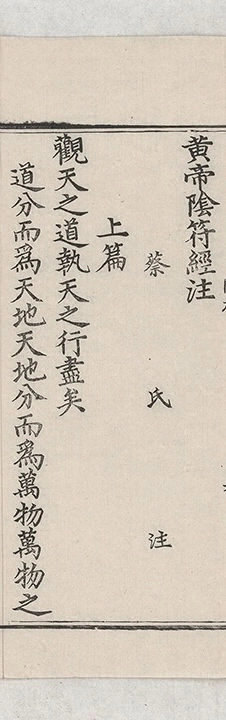 黄帝陰符經注
蔡氏注
上篇
觀天之道執天之行盡矣
道分而爲天地天地分而爲萬物萬物之